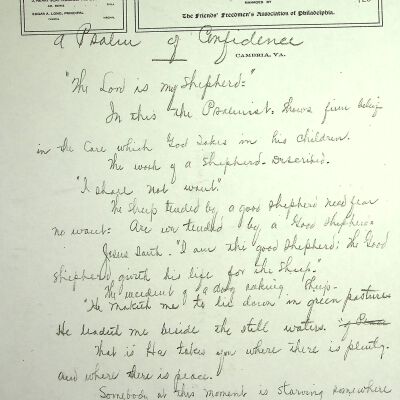 EDGAR A. LONG, PRINCIPAL,
The Friends' Freedmen's Association of Philadelphia.
CAMBRIA, VA.
A Psalm of Confidence
"The Lord is my Shepherd:"
In this the Psalmist. Shows firm belief
in the care which God takes in his children.
The work of a Shepherd. Described.
"I shall not want."
The sheep tended by a good shepherd need fear
no want: Are we tended by a Good shepherd?
Jesus saith. "I am the good shepherd: the Good
shepherd giveth his life for the sheep."
The incident of a dog taking sheep.
"He maketh me to lie down in green pastures
He leadeth me beside the still waters.
That is He takes you where there is plenty.
and where there is peace.
Somebody at this moment is starving somewhere